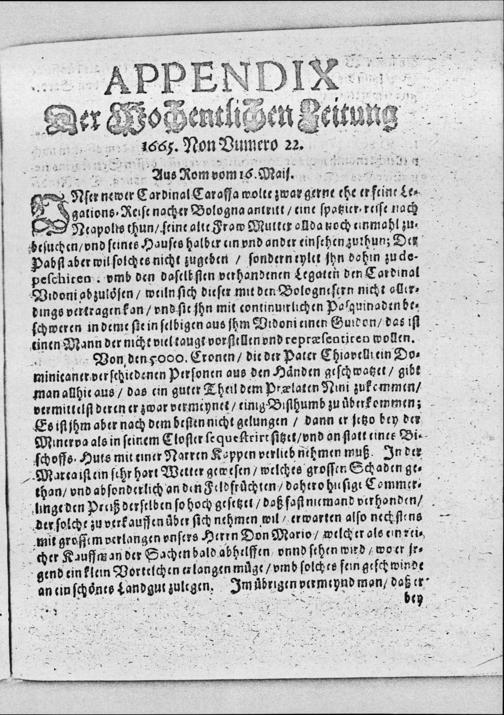 APPENDIX
Der Wochentlichen Zeitung
1665. Non Numero 22.
Aus Rom vom 16. Maij.
UNser newer Cardinal Caraffa wolte zwar gerne ehe er seine Le-
gations-Reise nacher Bologna antritt / eine spatzier-reise nach
Neapolis thun / seine alte Fraw Mutter allda noch einmahl zu-
besuchen / und seines Hauses halber ein und ander einsehen zu thun; Der
Pabst aber wil solches nicht zugeben / sondern eylet ihn dahin zu de-
peschiren / umb den daselbsten verhandenen Legaten den Cardinal
Vidoni abzulösen / weiln sich dieser mit den Bolognesern nicht aller-
dings vertragen kan / und sie ihn mit continuirlichen Pasquinaden be-
schweren in deme sie in selbigen aus ihm Vidoni einen Guidon / das ist
einen Mann der nicht viel taugt vorstellen und repræsentiren wollen.
Von den 5000. Cronen / die der Pater Chiavelli ein Do-
minicaner verschiedenen Personen aus den Händen geschwatzet / gibt
man allhie aus / das ein guter Theil dem Prælaten Nini zukommen /
vermittelst deren er zwar vermeynet / einig Bisthumb zu überkommen;
Es ist ihm aber nach dem besten nicht gelungen / dann er jetzo bey der
Minerva als in seinem Closter sequestrirt sitzet / und an statt eines Bi-
schoffs-Huts mit einer Narren Kappen verlieb nehmen muß. In der
Marca ist ein sehr hart Wetter gewesen / welches grossen Schaden ge-
than / und absonderlich an den Feldfrüchten / dahero hiesige Cammer-
linge den Preiß derselben so hoch gesetzet / daß fast niemand verhanden /
der solche zu verkauffen über sich nehmen wil / erwarten also nechstens
mit grossem verlangen unsers Herrn Don Mario / welcher als ein rei-
cher Kauffman der Sachen bald abhelffen / unnd sehen wird / wo er jr-
gend ein klein Vortelchen erlangen müge / umb solches fein geschwinde
an ein schönes Landgut zulegen. Im übrigen vermeynd man / daß er
bey